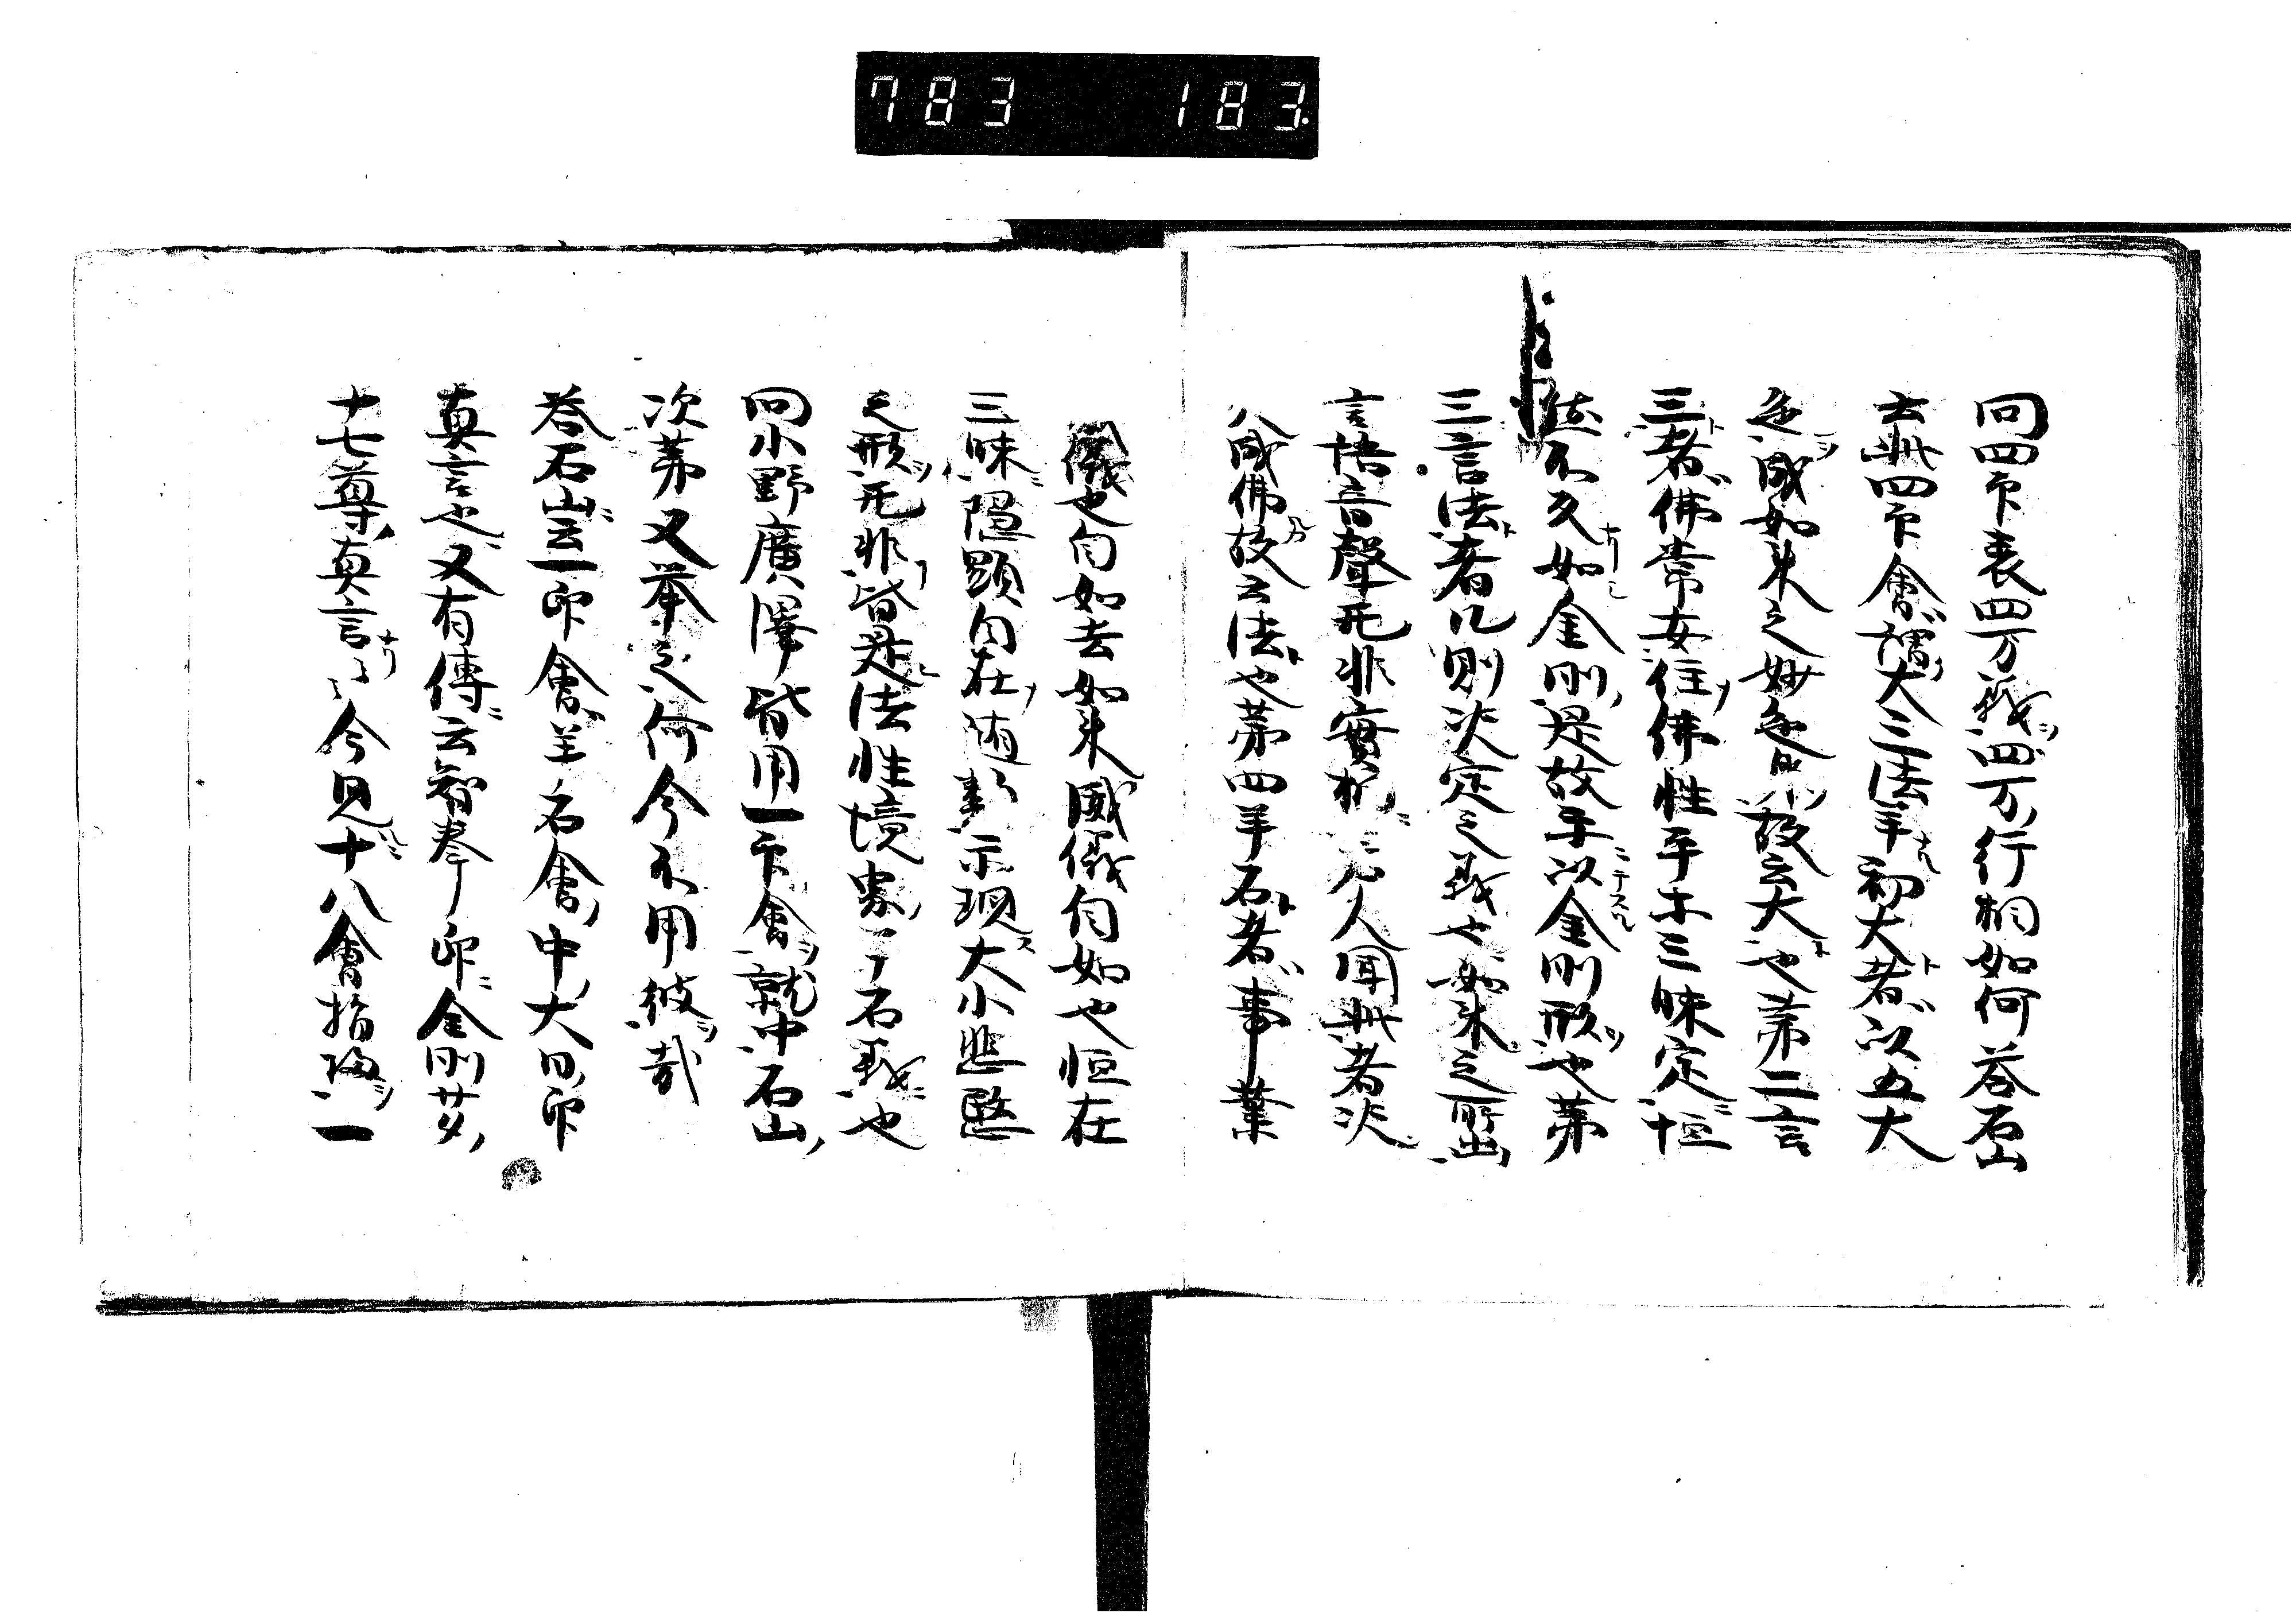 783 183.
問四印表四万義四万行相如何答石山
云此四印會謂大三法羊初大者以五大
之成如来之妙色故云大也第二言
三者佛常安住佛性平等三昧定恒
不久如金剛是故手以金剛形也第
三言法者凡則决定之義也如来之所出
言語音聲無非實相人聞此者决
成佛故云法也第四羊石者事業
儀也自如去如来威儀自如也恒在
三昧隠顕自在随類示現大小悲愍
之形無非皆是法性境界了石義也
問小野廣澤皆用一印會就中石山
次第又举之何今不用彼哉
答石山云一印會羊名會中大日印
真言也又有傳云智拳印金剛艾
十七尊真言今見十八會指歸一